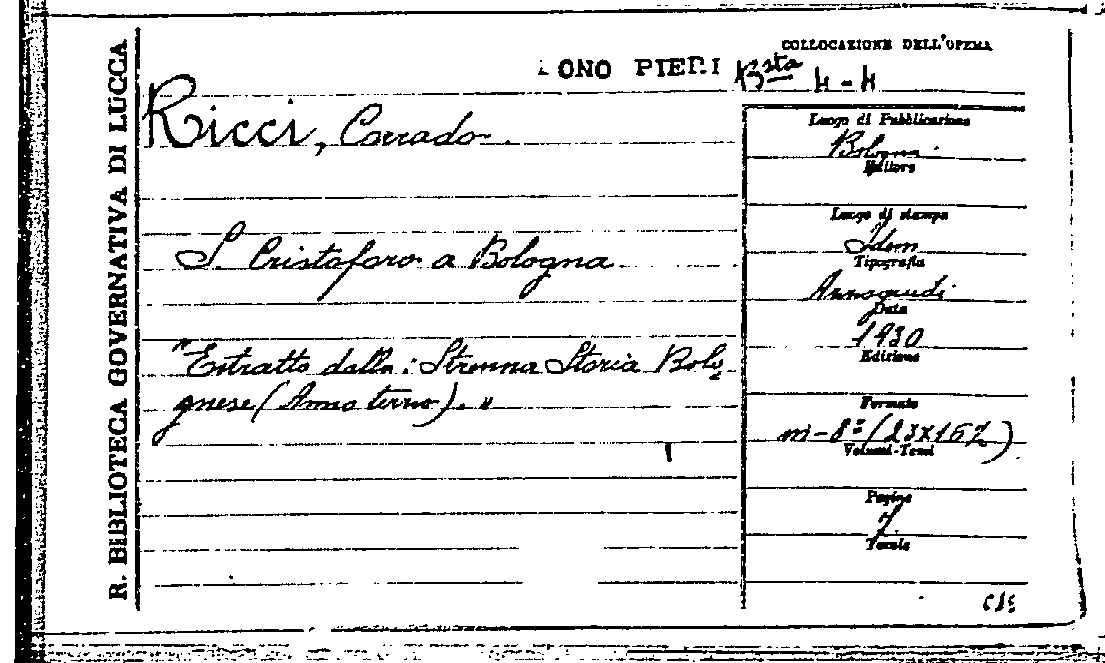 R. BIBLIOTECA GOVERNATIVA DI LUCCA
COLLOCAZIONE DELL'OPERA
ONO PIERI Bsta 4-4
Ricci, Corrado.
S. Cristoforo a Bologna
"Estratto dalla: Strenna Storia Bolo=
gnese (Anno terzo)."
Luogo di Pubblicazione
Bologna.
Editore
Luogo di stampa
Idem
Tipografia
Data
1930
Edizione
Formato
in-8º (23x16½)
Volumi-Tomi
Pagine
7
Tavole